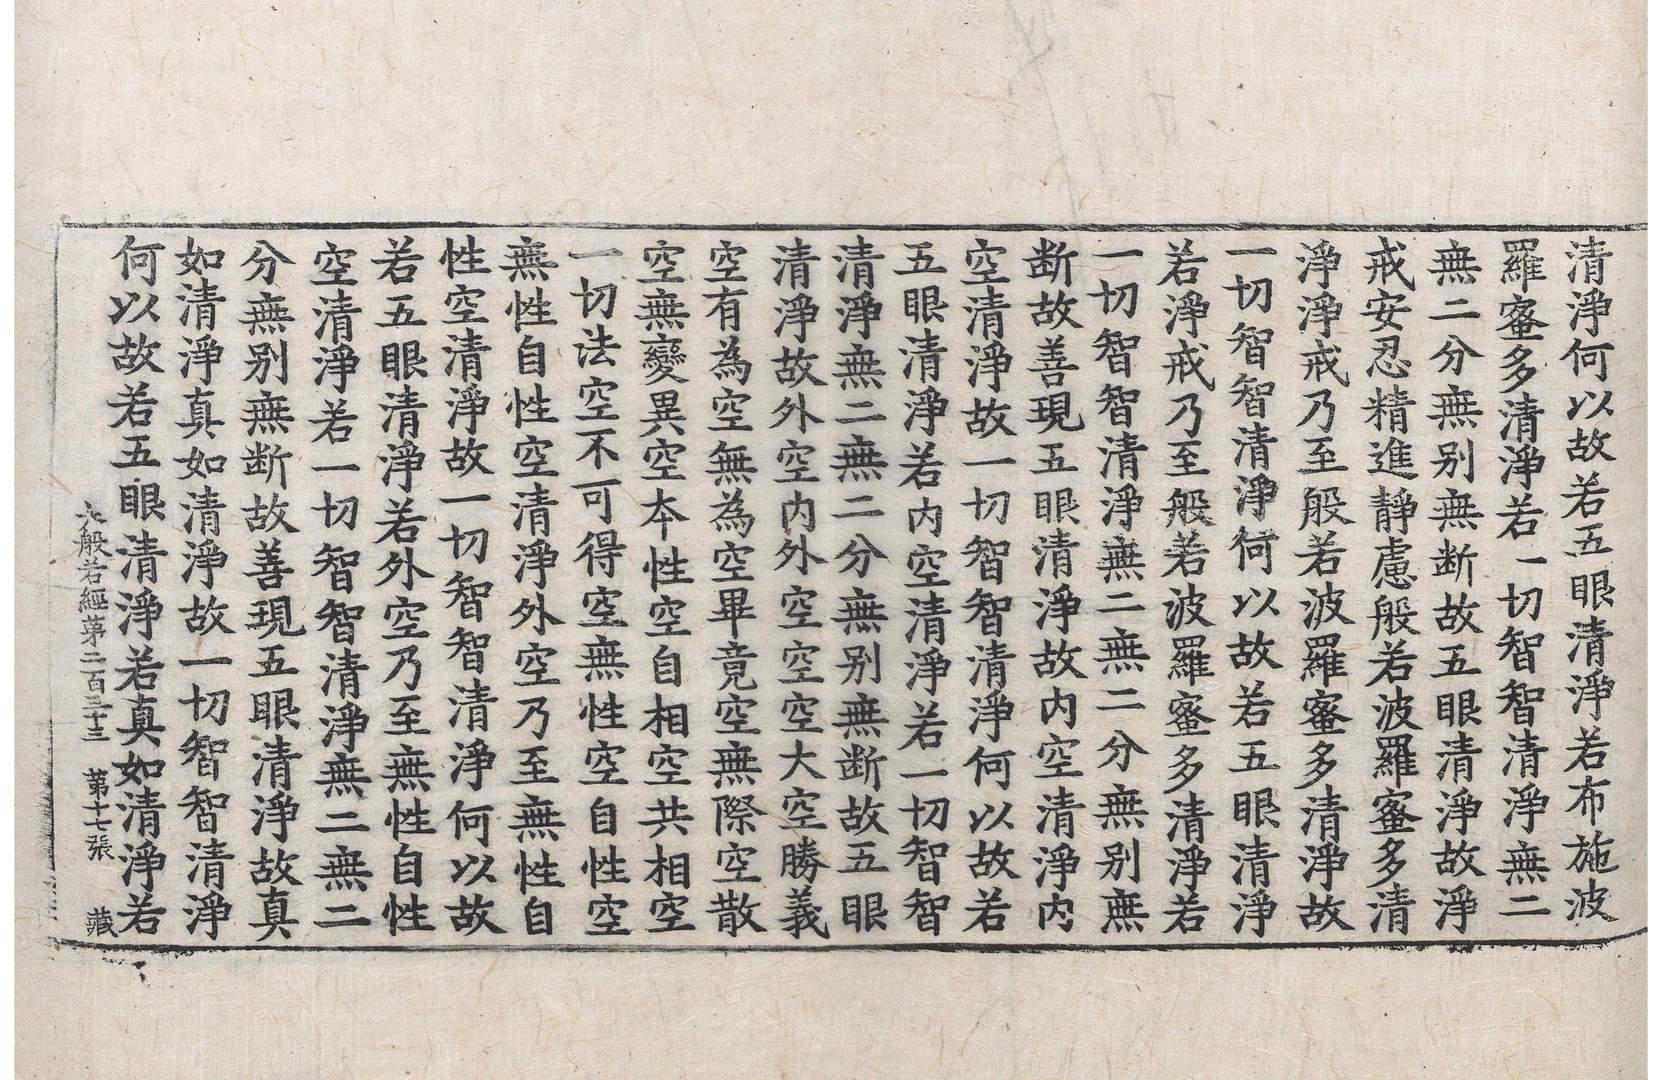 清淨何以故若五眼清淨若布施波
羅蜜多清淨若一切智智清淨無二
無二分無别無断故五眼清淨故淨
戒安忍精進靜慮般若波羅蜜多清
淨淨戒乃至般若波羅蜜多清淨故
一切智智清淨何以故若五眼清淨
若淨戒乃至般若波羅蜜多清淨若
一切智智清淨無二無二分無别無
断故善現五眼清淨故内空清淨内
空清淨故一切智智清淨何以故若
五眼清淨若内空清淨若一切智智
清淨無二無二分無别無断故五眼
清淨故外空内外空空空大空勝義
空有為空無為空畢竟空無際空散
空無變異空夲性空自相空共相空
一切法空不可得空無性空自性空
無性自性空清淨外空乃至無性自
性空清淨故一切智智清淨何以故
若五眼清淨若外空乃至無性自性
空清淨若一切智智清淨無二無二
分無别無断故善現五眼清淨故真
如清淨真如清淨故一切智智清淨
何以故若五眼清淨若真如清淨若
大般若經苐二百三十三 苐十七張 藏